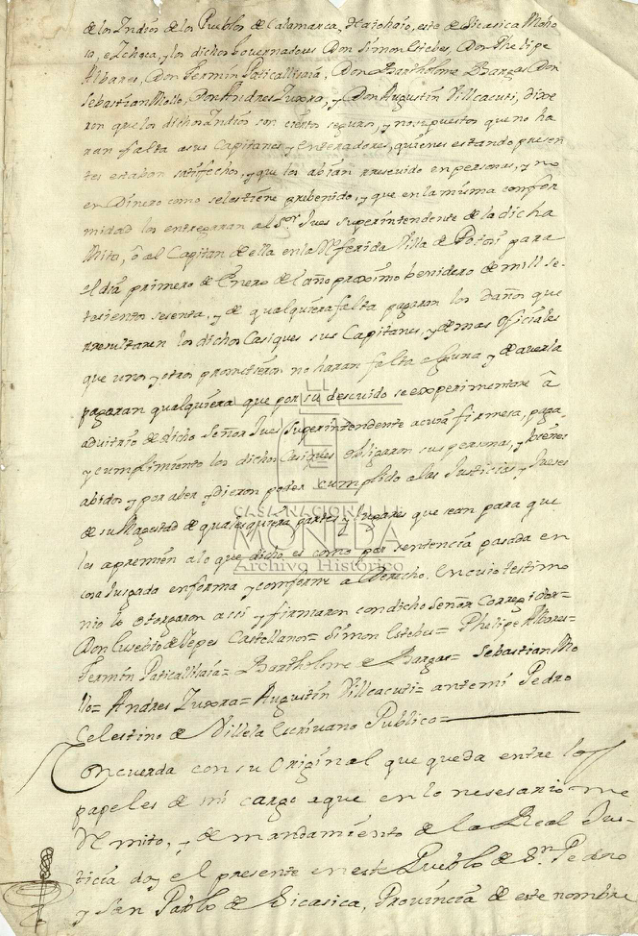 de los Indios de los Pueblos de Calamarca, Haiohaio, este de Sicasica Moho
sa, e Ichoca, y los dichos Governadores Don Simon Estebes, Don Phelipe
Albares, Don Fermin Paticallisaia, Don Bartholome Bargas Don
Sebastian Mollo, Don Andres Zuxra, y Don Augustin Villcacuti, dixe
ron que los dichos Indios son ciertos seguros, y no supuestos que no ha
ran falta a sus Capitanes y Enteradores, quienes estando presen
tes estaban satisfechos, y que los abian rresevido en personas, y no
en Dinero como seles tiene prebenido, y que en la misma confor
midad los entregaran al Sor. Jues Superintendente de la dicha
Mita, ô al Capitan de ella en la Referida Villa de Potosi para
el dia primero de Enero de el año proximo benidero de mill se
tesientos sesenta, y de qualquiera falta pagaran los daños que
rresultaren los dichos Casiques sus Capitanes, y demas Ofisiales
que unos y otros prometieron no haran falta alguna y de averla
pagaran qualquiera que por su descuido se experimentare â
advitrio de dicho Señor Jues Superintendente a cuia firmesa, paga
y cumplimiento los dichos Casiques obligaron sus personas, y bienes
abidos y por aber, y dieron poder cumplido a las Justicias y Jueses
de su Magestad de qualesquiera partes y lugares que sean para que
les apremien a lo que dicho es como por sentencia pasada en
cosa Juzgada en forma y conforme a Derecho. En cuio testimo
nio lo otorgaron assi y firmaron con dicho Señor Corregidor=
Don Eusebio de Yepes Castellanos= Simon Estebes= Phelipe Albares=
Fermin Paticallisaia= Bartholome de Bargas= Sebastian Mo
llo= Andres Zuxra= Augustin Villcacuti= ante mi Pedro
Celestino de Villela Escrivano Publico=
CASA NACIONAL
MONEDA
Archivo Histórico
Concuerda con su Original que queda entre los
papeles de mi cargo a que en lo nesesario me
Remito, y de mandamiento de la Real Jus-
ticia doy el presente en este Pueblo de Sn. Pedro
y San Pablo de Sicasica, Provincia de este nombre